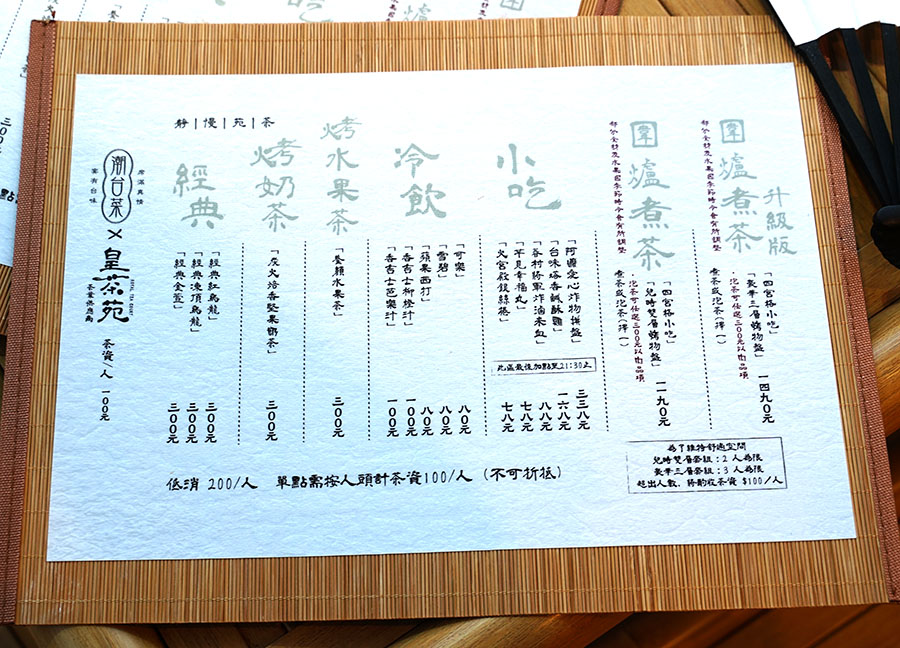 圍爐煮茶
升級版
部份食材及水果因季節時令會有所調整
「四宮格小吃」
「豪華三層烤物盤」
·泡茶可任選三00元以內品項
煮茶或泡茶(擇一)
一四九0元
圍爐煮茶
部份食材及水果因季節時令會有所調整
「兒時雙層烤物盤」
·泡茶可任選三00元以內品項
煮茶或泡茶(擇一)
一一九0元
為了維持舒適空間
兒時雙層套組:2人為限
豪華三層套組:3人為限
超出人數,將酌收茶資 $100/人
小吃
「阿嬤愛心炸物拼盤」 三三八元
「台味塔香鹹酥雞」 一六八元
「眷村將軍炸滷米血」 八八元
「罕見幸福丸」 七八元
「火宮殿銀絲捲」 七八元
此區最後加點至21:30止
冷飲
「可樂」 八0元
「雪碧」 八0元
「蘋果西打」 八0元
「香吉士柳橙汁」 一00元
「香吉士芭樂汁」 一00元
烤水果茶
「養顏水果茶」 三00元
烤奶茶
「炭火焙香堅果茶」 三00元
靜|慢|苑|茶
經典
「經典紅烏龍」 三00元
「經典凍頂烏龍」 三00元
「經典金萱」 三00元
席滿真情
潮台菜
宴有台味
×
皇茶苑
ROYAL TEA COURT
茶葉供應商
茶資/人 一00元
低消 200/人 單點需按人頭計茶資100/人 (不可折抵)